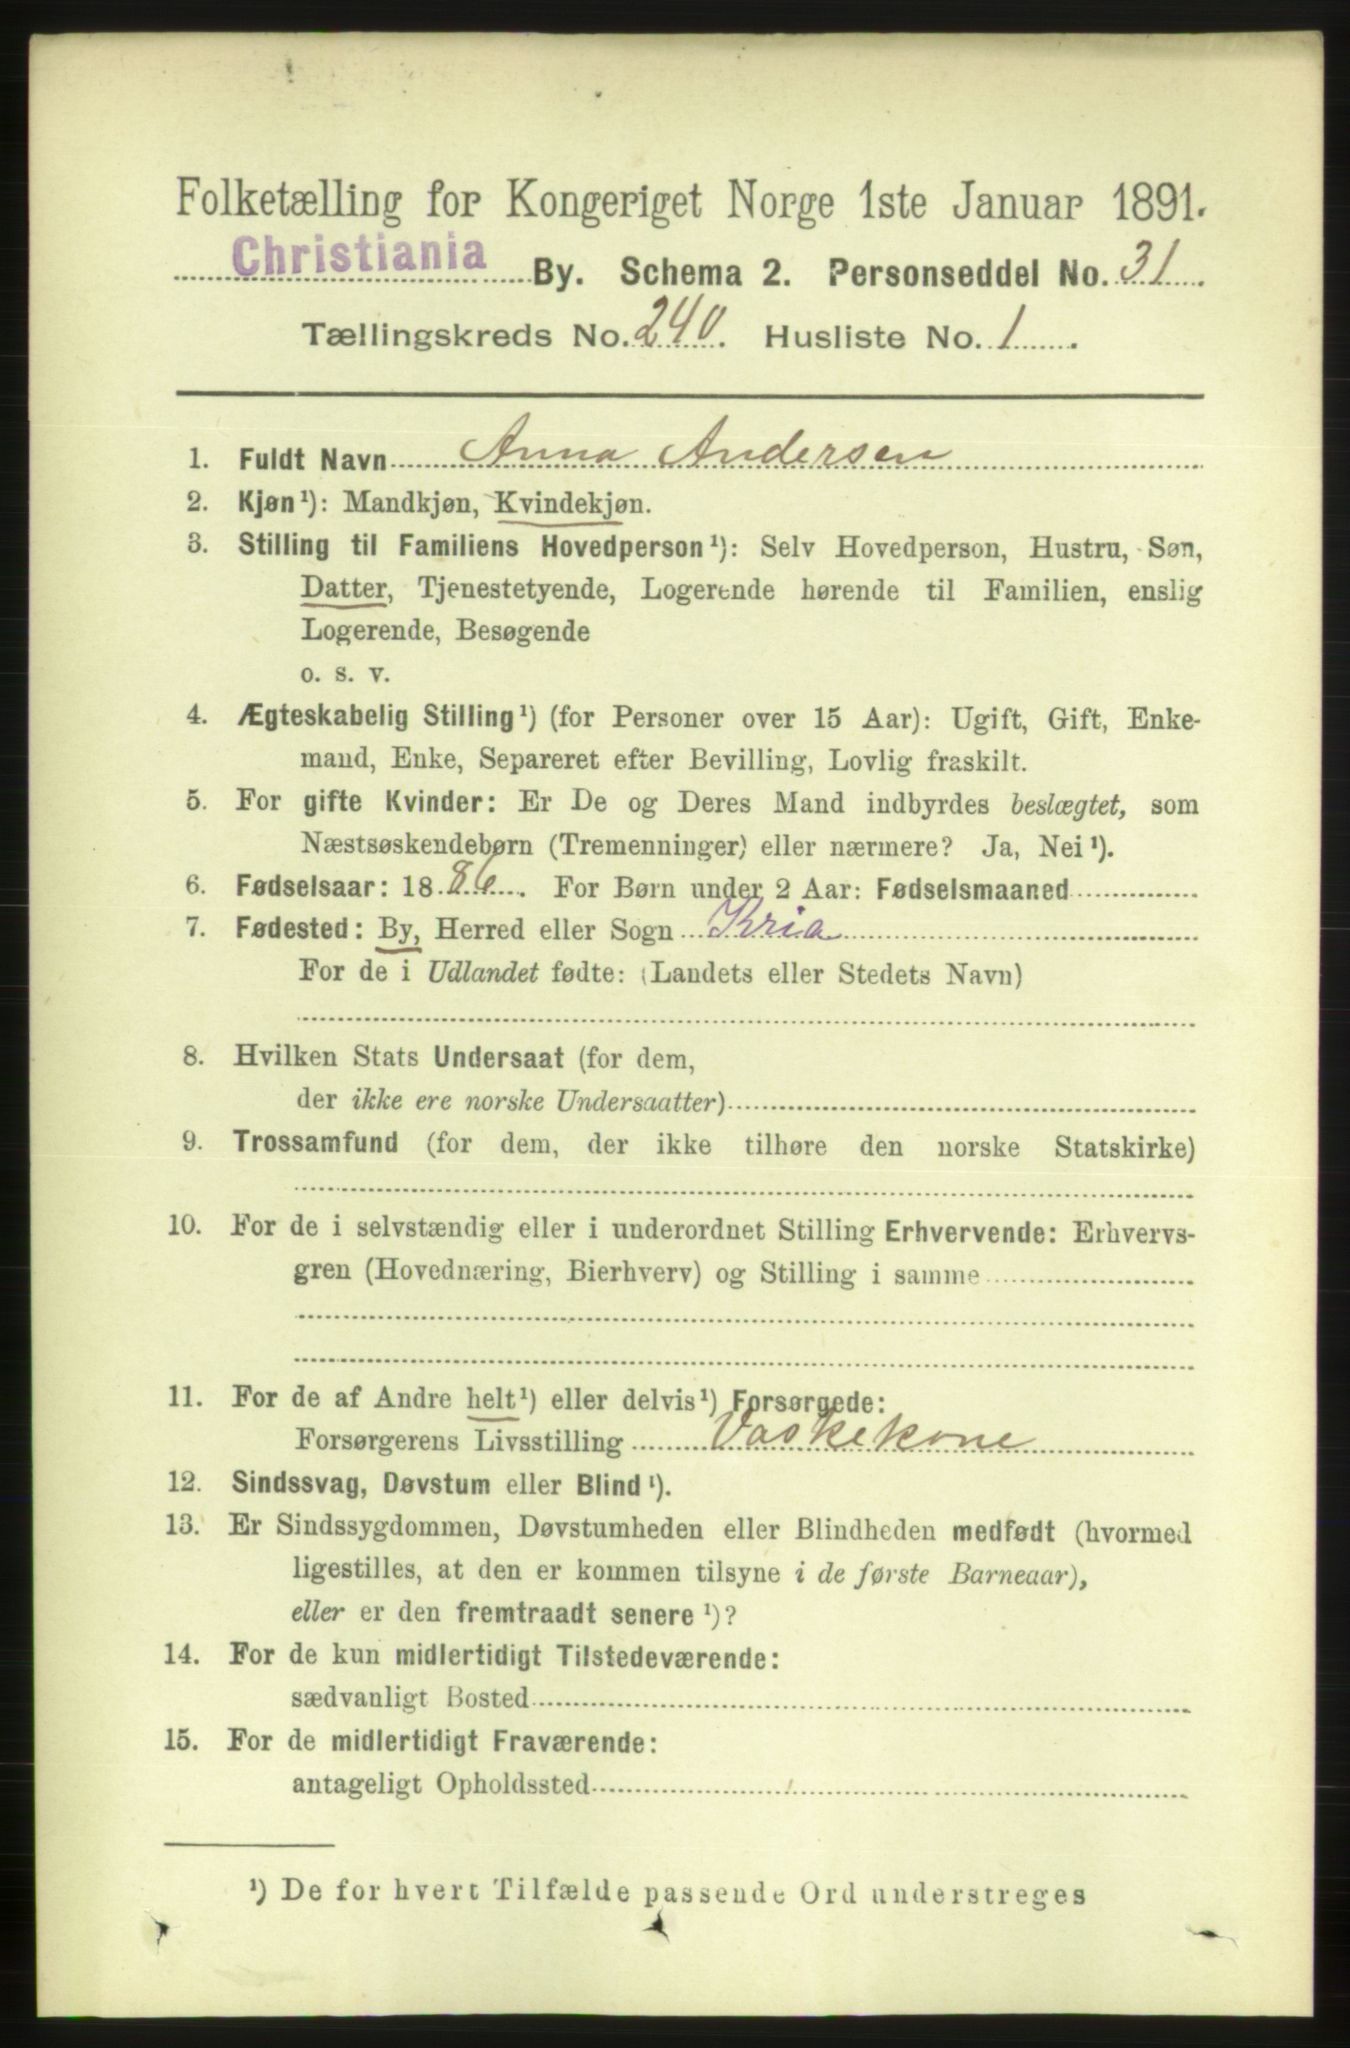 Folketælling for Kongeriget Norge 1ste Januar 1891.
Christiania By. Schema 2. Personseddel No. 31.
Tællingskreds No. 240. Husliste No. 1.
1. Fuldt Navn Anna Andersen
2. Kjøn¹): Mandkjøn, Kvindekjøn.
3. Stilling til Familiens Hovedperson¹): Selv Hovedperson, Hustru, Søn,
Datter, Tjenestetyende, Logerende hørende til Familien, enslig
Logerende, Besøgende
o. s. v.
4. Ægteskabelig Stilling¹) (for Personer over 15 Aar): Ugift, Gift, Enke-
mand, Enke, Separeret efter Bevilling, Lovlig fraskilt.
5. For gifte Kvinder: Er De og Deres Mand indbyrdes beslægtet, som
Næstsøskendebørn (Tremenninger) eller nærmere? Ja, Nei¹).
6. Fødselsaar: 1886. For Børn under 2 Aar: Fødselsmaaned
7. Fødested: By, Herred eller Sogn Kria
For de i Udlandet fødte: (Landets eller Stedets Navn)
8. Hvilken Stats Undersaat (for dem,
der ikke ere norske Undersaatter)
9. Trossamfund (for dem, der ikke tilhøre den norske Statskirke)
10. For de i selvstændig eller i underordnet Stilling Erhvervende: Erhvervs-
gren (Hovednæring, Bierhverv) og Stilling i samme
11. For de af Andre helt¹) eller delvis¹) Forsørgede:
Forsørgerens Livsstilling Vaskekone
12. Sindssvag, Døvstum eller Blind¹).
13. Er Sindssygdommen, Døvstumheden eller Blindheden medfødt (hvormed
ligestilles, at den er kommen tilsyne i de første Barneaar),
eller er den fremtraadt senere¹)?
14. For de kun midlertidigt Tilstedeværende:
sædvanligt Bosted
15. For de midlertidigt Fraværende:
antageligt Opholdssted
¹) De for hvert Tilfælde passende Ord understreges